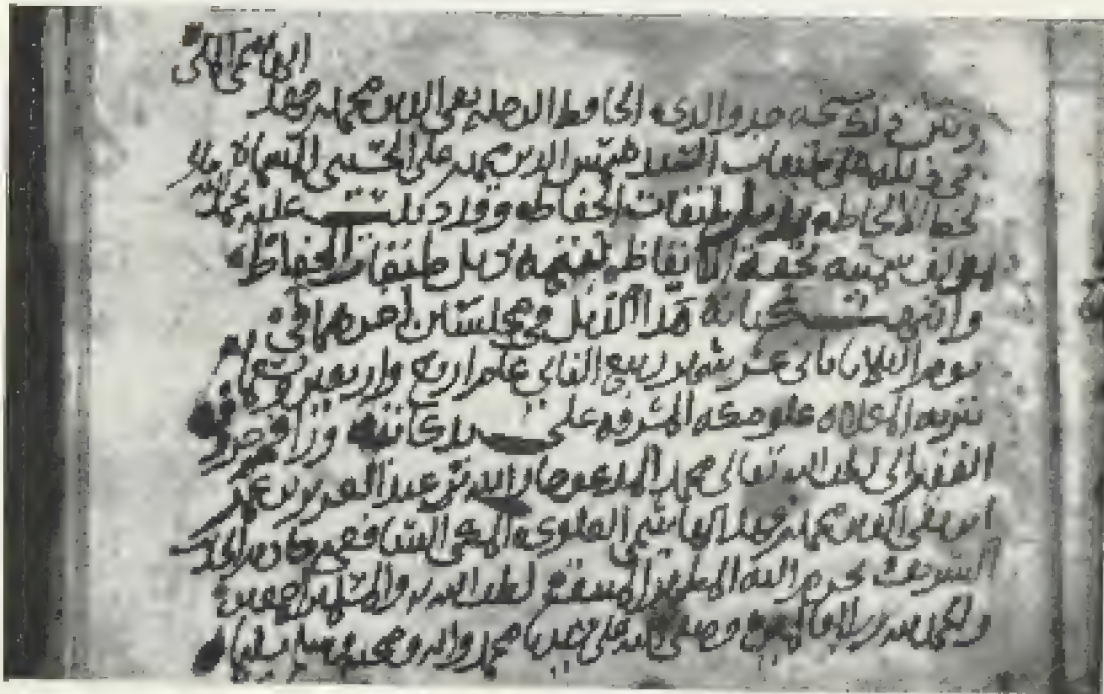 الهاشمي المكي
ونقل ذلك نسخه جد والدي الحافظ الرحله تقي الدين محمد بن فهد
في ذيله على طبقات السيد شمس الدين محمد بن علي الحسيني المسماة
لحظ الالحاظ بذيل طبقات الحفاظ وقد ذيلت عليه بحمد الله
سميته تحفة الايقاظ بتتمة ذيل طبقات الحفاظ
وانتهت كتابة هذا الذيل في مجلسين احدهما في
يوم الثلاثا ثاني عشر شهر ربيع الثاني عام اربع واربعين وتسعمائة
بتربة المعلاه علو مكه المشرفه على يد كاتبه
الفقير الى لطف الله تعالى محمد المدعو جار الله بن عبد العزيز بن عمر
ابن تقي الدين محمد بن فهد الهاشمي العلوي المكي الشافعي خادم الحديث
الشريف بحرم الله المنيف لطف الله به والمسلمين اجمعين
والحمد لله رب العالمين وصلى الله على سيدنا محمد واله وصحبه وسلم تسليما